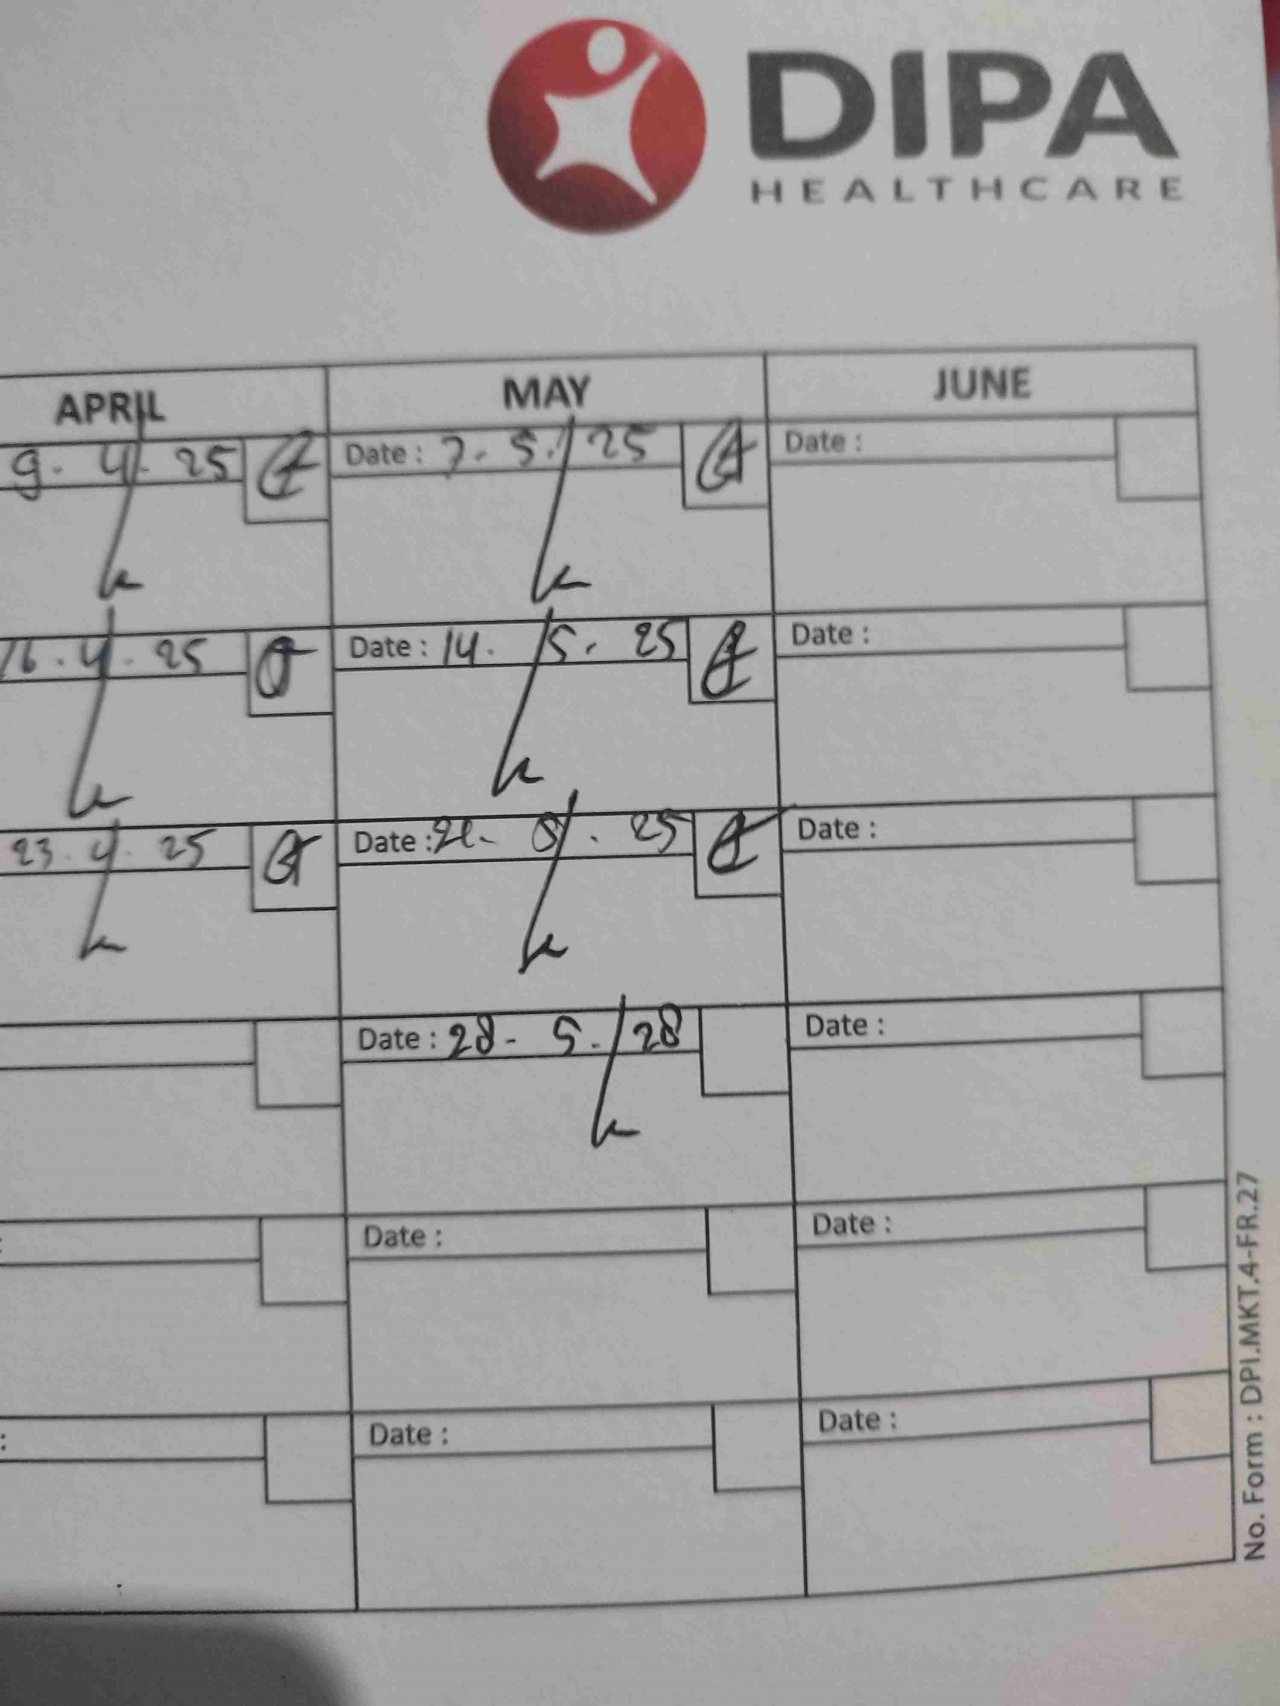 DIPA
HEALTHCARE
APRIL MAY JUNE
9. 4. 25 Date : 7. 5. 25 Date :
16. 4. 25 Date : 14. 5. 25 Date :
23. 4. 25 Date : 21. 5. 25 Date :
Date : 28. 5. 28 Date :
: Date : Date :
: Date : Date :
No. Form : DPI.MKT.4-FR.27